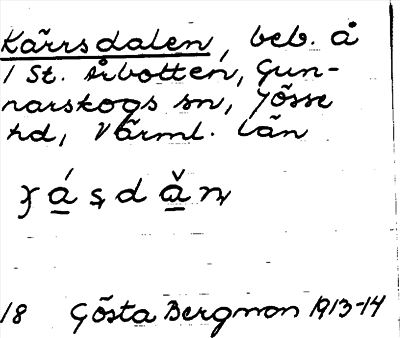 Kärrsdalen, beb. å
1 St. Årbotten, Gun-
narskogs sn, Jösse
hd, Värml. län
18 Gösta Bergman 1913-14